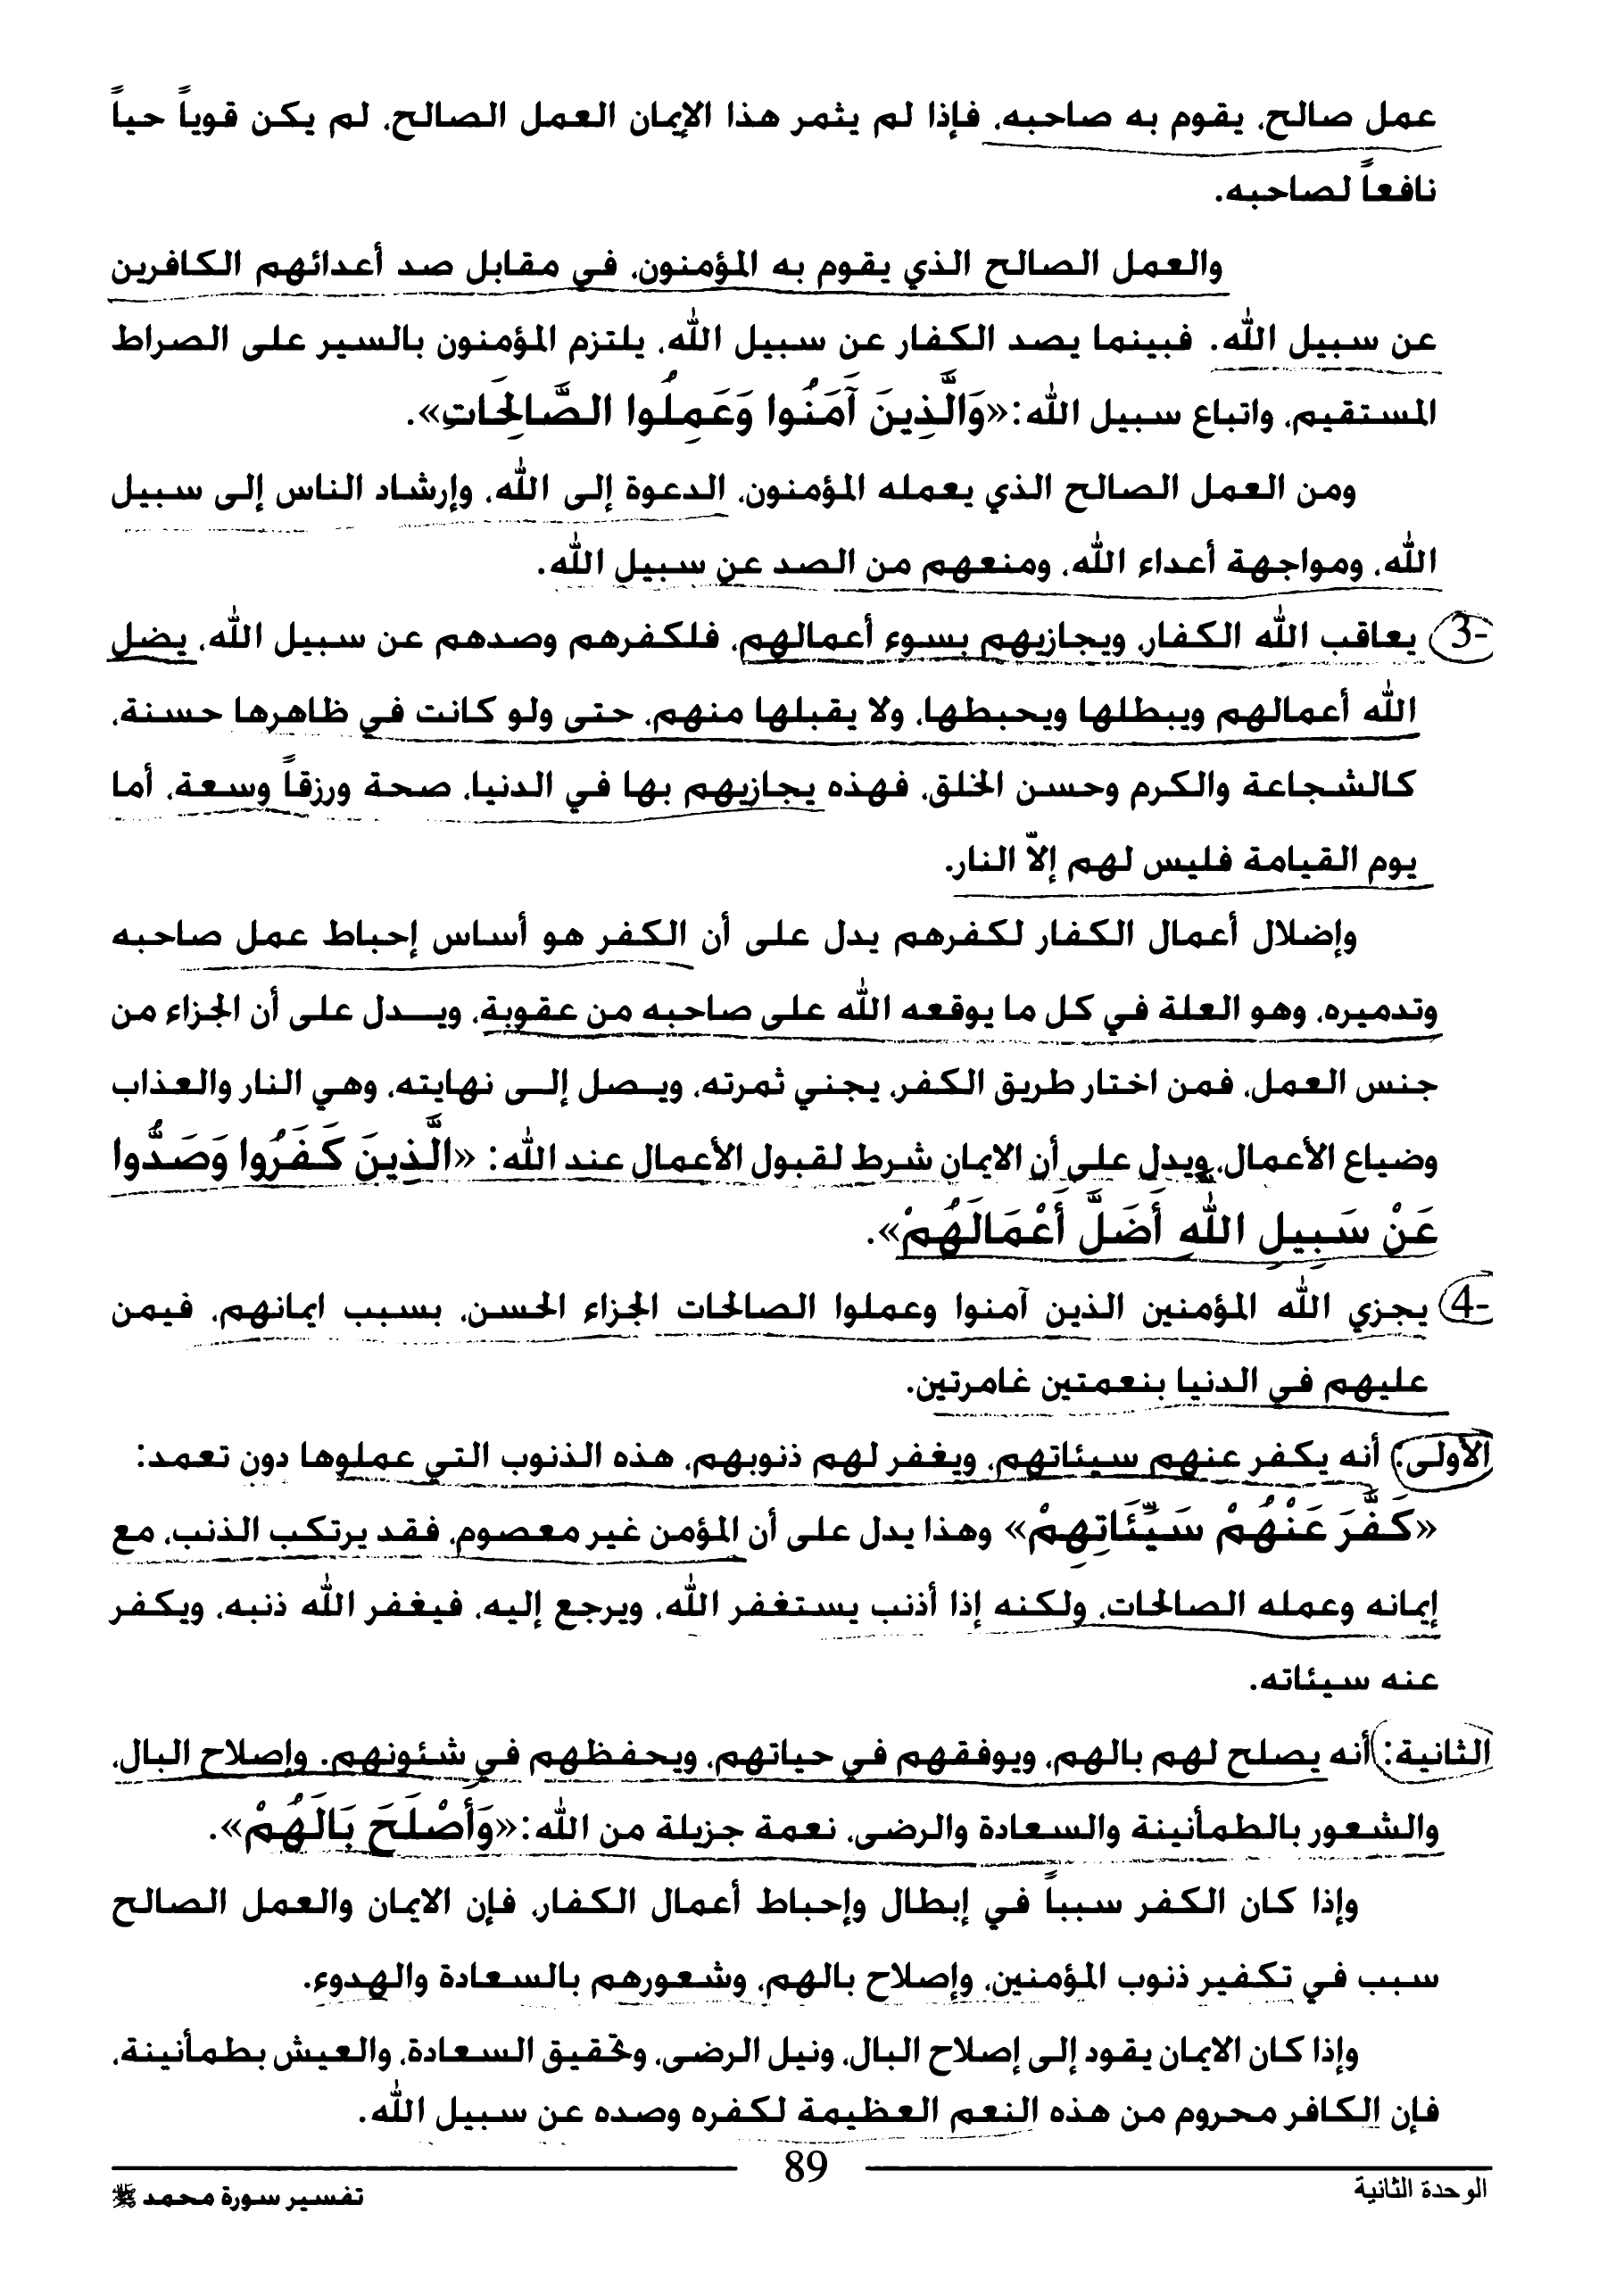 عمل صالح، يقوم به صاحبه، فإذا لم يثمر هذا الإيمان العمل الصالح، لم يكن قوياً حياً
نافعاً لصاحبه.
والعمل الصالح الذي يقوم به المؤمنون، في مقابل صد أعدائهم الكافرين
عن سبيل الله. فبينما يصد الكفار عن سبيل الله، يلتزم المؤمنون بالسير على الصراط
المستقيم، واتباع سبيل الله: «وَالَّذِينَ آمَنُوا وَعَمِلُوا الصَّالِحَاتِ».
ومن العمل الصالح الذي يعمله المؤمنون، الدعوة إلى الله، وإرشاد الناس إلى سبيل
الله، ومواجهة أعداء الله، ومنعهم من الصد عن سبيل الله.
3- يعاقب الله الكفار، ويجازيهم بسوء أعمالهم، فلكفرهم وصدهم عن سبيل الله، يضل
الله أعمالهم ويبطلها ويحبطها، ولا يقبلها منهم، حتى ولو كانت في ظاهرها حسنة،
كالشجاعة والكرم وحسن الخلق، فهذه يجازيهم بها في الدنيا، صحة ورزقاً وسعة، أما
يوم القيامة فليس لهم إلاّ النار.
وإضلال أعمال الكفار لكفرهم يدل على أن الكفر هو أساس إحباط عمل صاحبه
وتدميره، وهو العلة في كل ما يوقعه الله على صاحبه من عقوبة، ويدل على أن الجزاء من
جنس العمل، فمن اختار طريق الكفر، يجني ثمرته، ويصل إلى نهايته، وهي النار والعذاب
وضياع الأعمال، ويدل على أن الايمان شرط لقبول الأعمال عند الله: «الَّذِينَ كَفَرُوا وَصَدُّوا
عَنْ سَبِيلِ اللهِ أَضَلَّ أَعْمَالَهُمْ».
4- يجزي الله المؤمنين الذين آمنوا وعملوا الصالحات الجزاء الحسن، بسبب ايمانهم، فيمن
عليهم في الدنيا بنعمتين غامرتين.
الأولى: أنه يكفر عنهم سيئاتهم، ويغفر لهم ذنوبهم، هذه الذنوب التي عملوها دون تعمد:
«كَفَّرَ عَنْهُمْ سَيِّئَاتِهِمْ» وهذا يدل على أن المؤمن غير معصوم، فقد يرتكب الذنب، مع
إيمانه وعمله الصالحات، ولكنه إذا أذنب يستغفر الله، ويرجع إليه، فيغفر الله ذنبه، ويكفر
عنه سيئاته.
الثانية: أنه يصلح لهم بالهم، ويوفقهم في حياتهم، ويحفظهم في شئونهم. وإصلاح البال،
والشعور بالطمأنينة والسعادة والرضى، نعمة جزيلة من الله: «وَأَصْلَحَ بَالَهُمْ».
وإذا كان الكفر سبباً في إبطال وإحباط أعمال الكفار، فإن الايمان والعمل الصالح
سبب في تكفير ذنوب المؤمنين، وإصلاح بالهم، وشعورهم بالسعادة والهدوء.
وإذا كان الايمان يقود إلى إصلاح البال، ونيل الرضى، وتحقيق السعادة، والعيش بطمأنينة،
فإن الكافر محروم من هذه النعم العظيمة لكفره وصده عن سبيل الله.
89
الوحدة الثانية
تفسير سورة محمد ﷺ